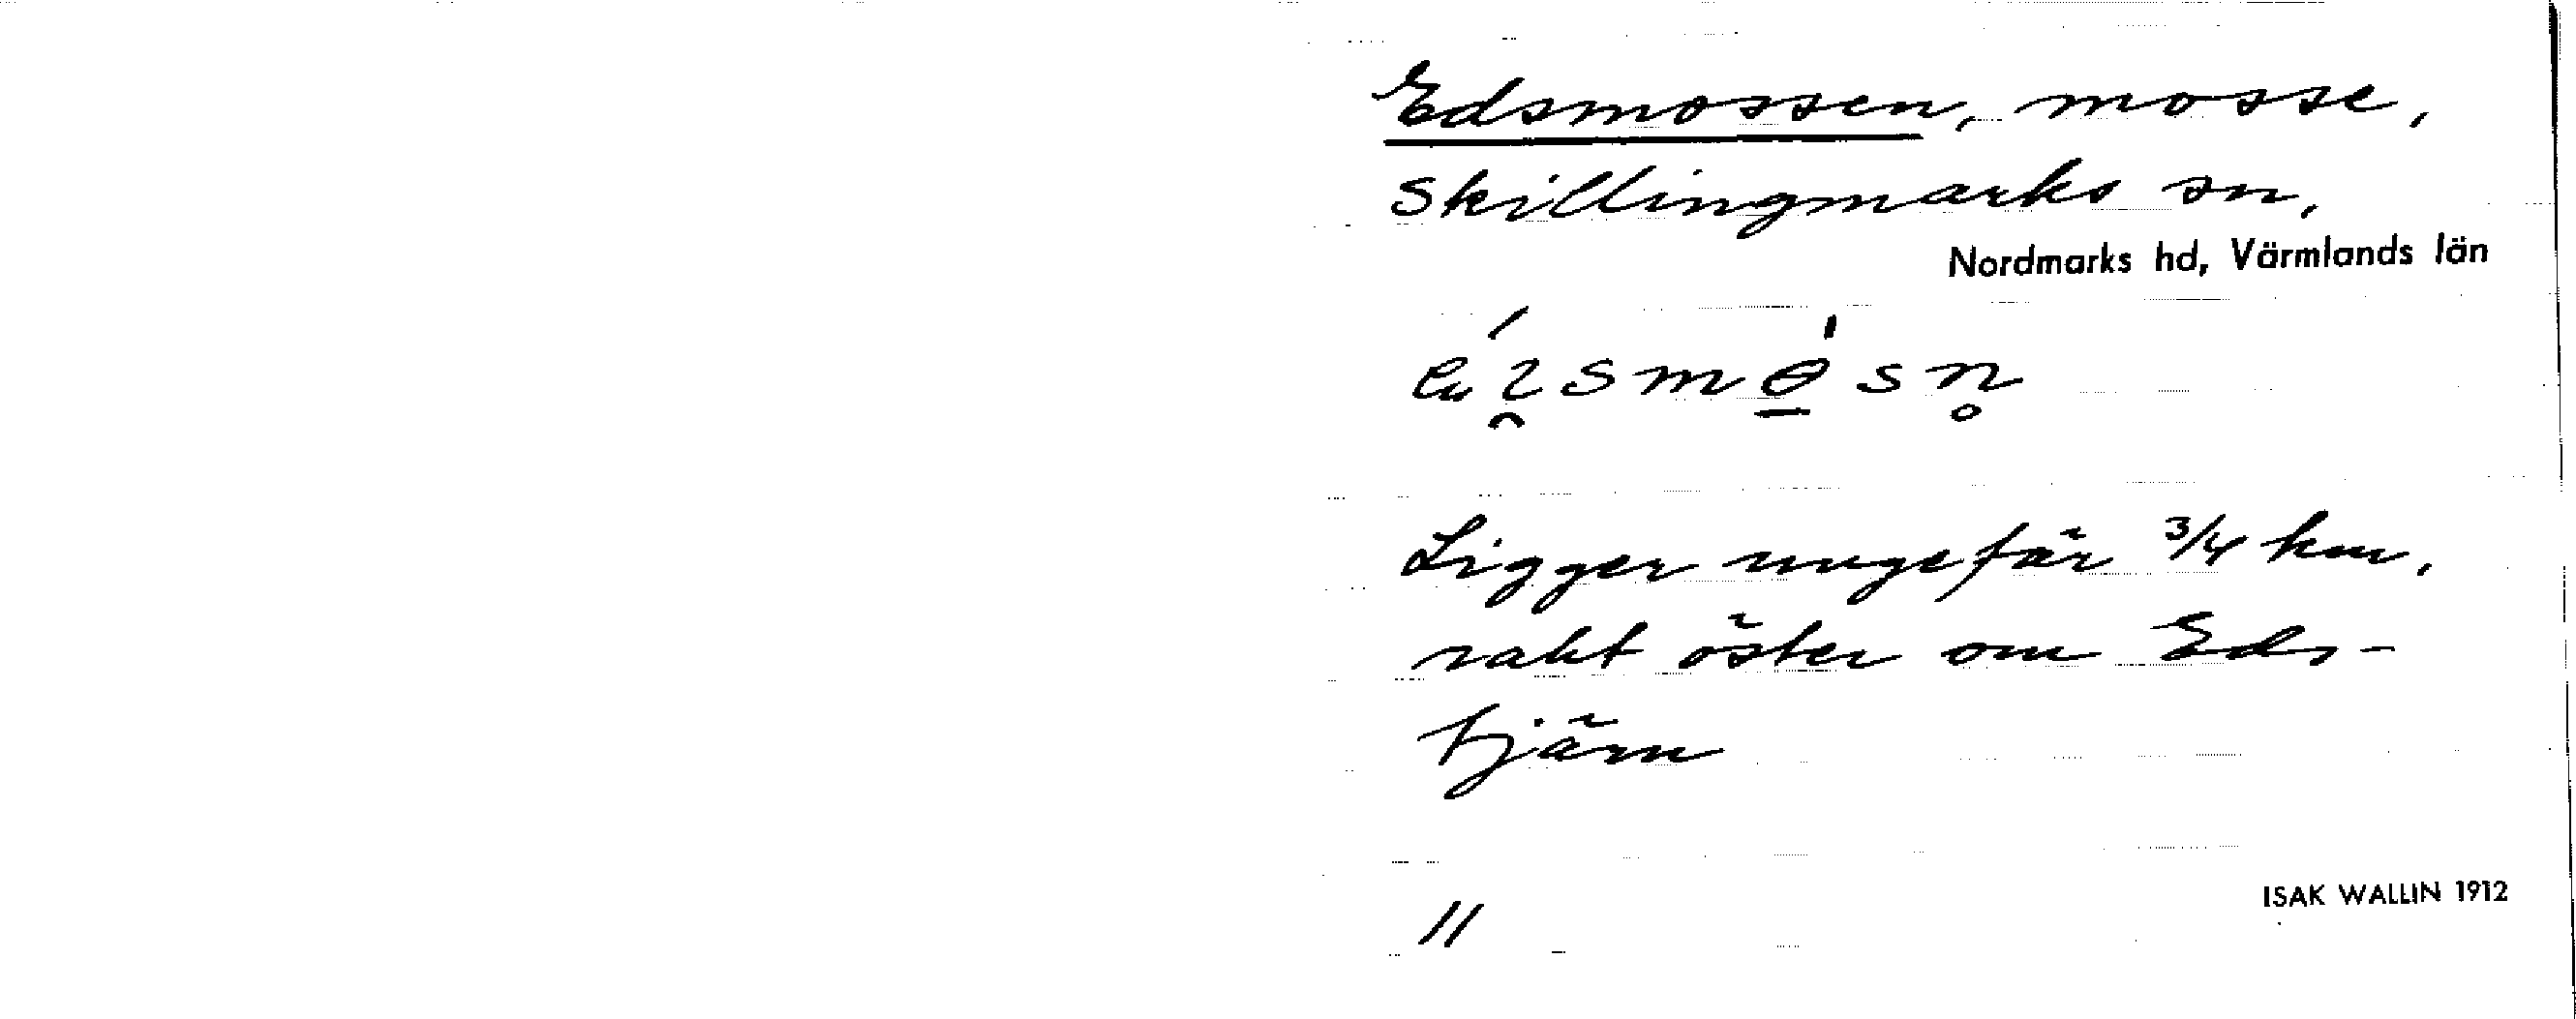 Edsmossen, mosse,
Skillingmarks sn,
Nordmarks hd, Värmlands län
Ligger ungefär 3/4 km,
rakt öster om Eds-
tjärn
ISAK WALLIN 1912
11